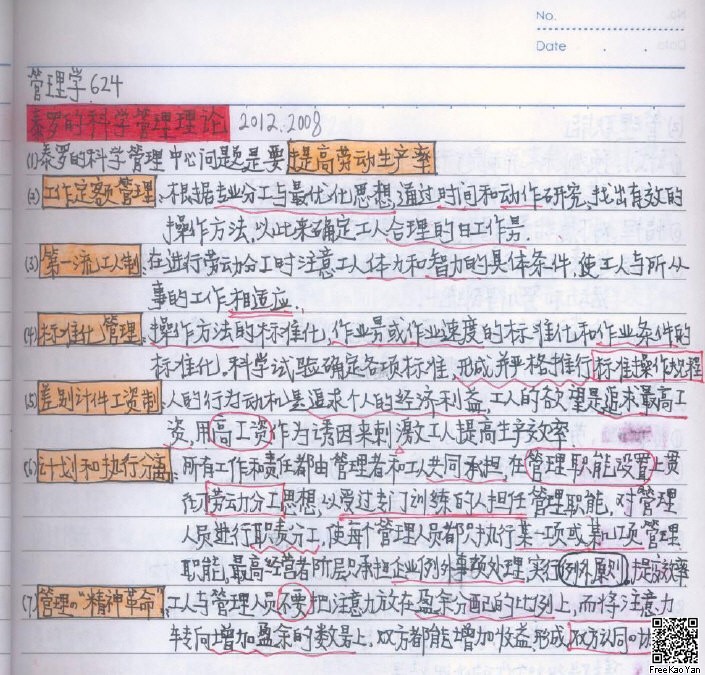 No.
Date . .
管理学 624
泰罗的科学管理理论 2012.2008
(1)泰罗的科学管理中心问题是要提高劳动生产率
(2)工作定额管理:根据专业分工与最优化思想,通过时间和动作研究,找出有效的
操作方法,以此来确定工人合理的日工作量.
(3)第一流工人制:在进行劳动分工时注意工人体力和智力的具体条件,使工人与所从
事的工作相适应.
(4)标准化管理:操作方法的标准化,作业量或作业速度的标准化和作业条件的
标准化,科学试验确定各项标准,形成并严格推行标准操作规程
(5)差别计件工资制:人的行为动机是追求个人的经济利益,工人的欲望是追求最高工
资,用高工资作为诱因来刺激工人提高生产效率
(6)计划和执行分离:所有工作和责任都由管理者和工人共同承担,在管理职能设置上贯
劳动分工思想,以受过专门训练的人担任管理职能,对管理
人员进行职责分工,使每个管理人员都只执行某一项或某几项管理
职能,最高经营者阶层只承担企业例外事项处理,实行例外原则,提高效率
(7)管理的"精神革命":工人与管理人员不要把注意力放在盈余分配的比例上,而将注意力
转向增加盈余的数量上,双方都能增加收益,形成双方认同
FreeKaoYan